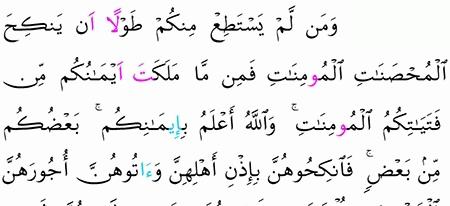 وَمَن لَّمْ يَسْتَطِعْ مِنكُمْ طَوْلًا اَن يَنكِحَ
اَلْمُحْصَنَٰتِ اِلْمُومِنَٰتِ فَمِن مَّا مَلَكَتَ اَيْمَٰنُكُم مِّن
فَتَيَٰتِكُمُ اُلْمُومِنَٰتِۚ وَاللَّهُ أَعْلَمُ بِإِيمَٰنِكُمۚ بَعْضُكُم
مِّنۢ بَعْضٖۚ فَانكِحُوهُنَّ بِإِذْنِ أَهْلِهِنَّ وَءَاتُوهُنَّ أُجُورَهُنَّ